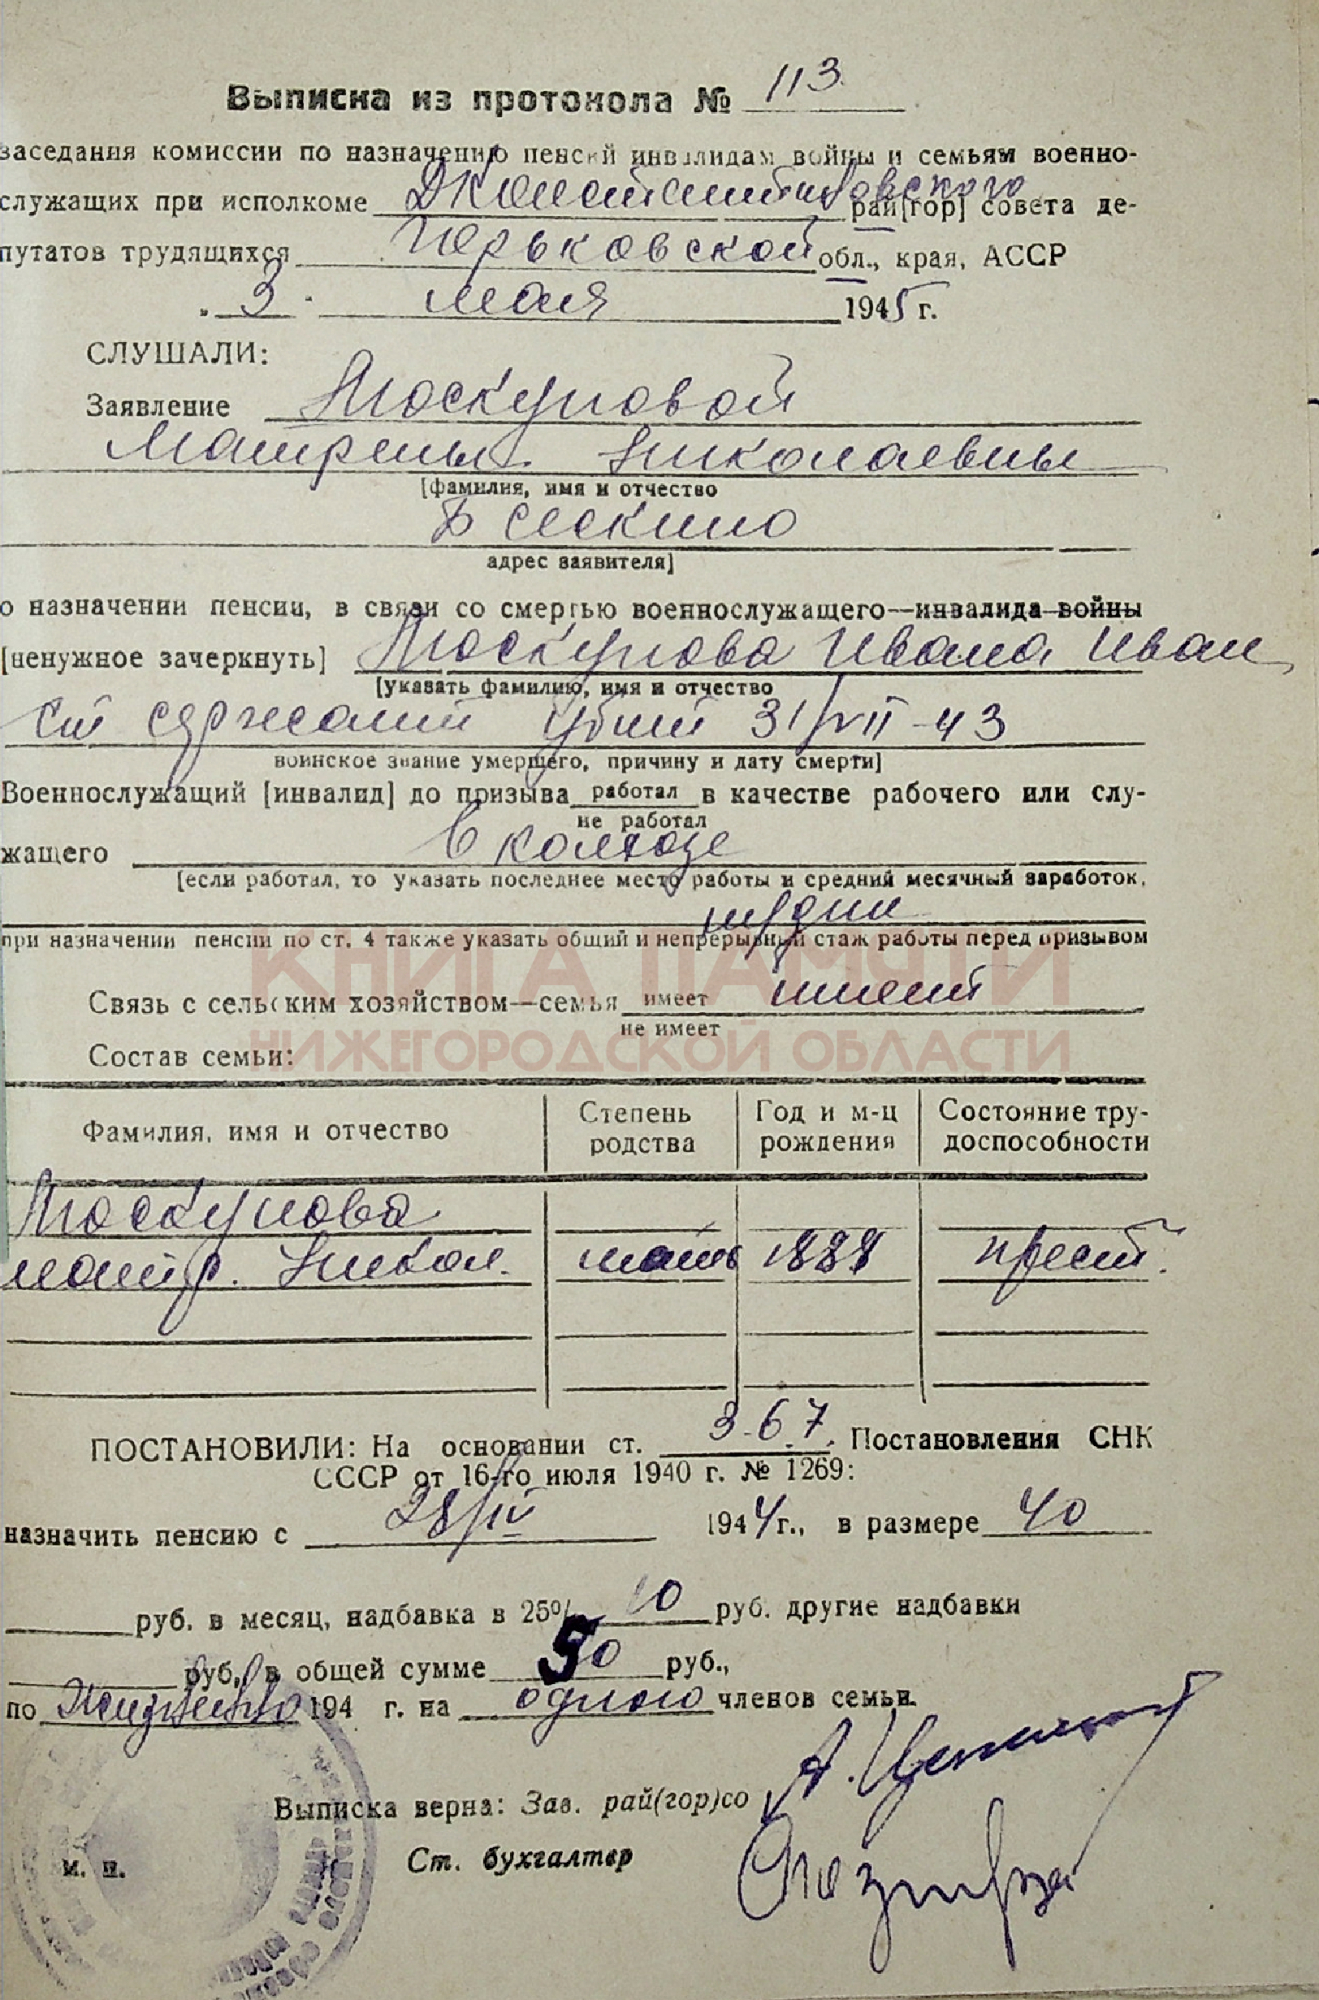 Выписка из протокола № 113
заседания комиссии по назначению пенсий инвалидам войны и семьям военно-
служащих при исполкоме ДКонстантиновского рай[гор] совета де-
путатов трудящихся Горьковской обл., края, АССР
„ 3 " мая 1945 г.
СЛУШАЛИ:
Заявление Москуновой
Матрены Николаевны
[фамилия, имя и отчество
Б сескино
адрес заявителя]
о назначении пенсии, в связи со смертью военнослужащего—инвалида войны
[ненужное зачеркнуть] Москунова Ивана Иван
[указать фамилию, имя и отчество
ст сержант убит 31/VII-43
воинское звание умершего, причину и дату смерти]
Военнослужащий [инвалид] до призыва работал в качестве рабочего или слу-
не работал
жащего в колхозе
[если работал, то указать последнее место работы и средний месячный заработок,
тр/дни
при назначении пенсии по ст. 4 также указать общий и непрерывный стаж работы перед призывом
КНИГА ПАМЯТИ
Связь с сельским хозяйством—семья имеет имеет
не имеет
НИЖЕГОРОДСКОЙ ОБЛАСТИ
Состав семьи:
Фамилия, имя и отчество Степень родства Год и м-ц рождения Состояние тру-доспособности
Москунова
матр. Никол. мать 1888 прест.
ПОСТАНОВИЛИ: На основании ст. 3.6.7. Постановления СНК
СССР от 16-го июля 1940 г. № 1269:
назначить пенсию с 28/IV 1944 г., в размере 40
руб. в месяц, надбавка в 25% 10 руб. другие надбавки
руб. в общей сумме 50 руб.,
по жизненно 194 г. на одного членов семьи.
Выписка верна: Зав. рай(гор)со
м. п.
Ст. бухгалтер